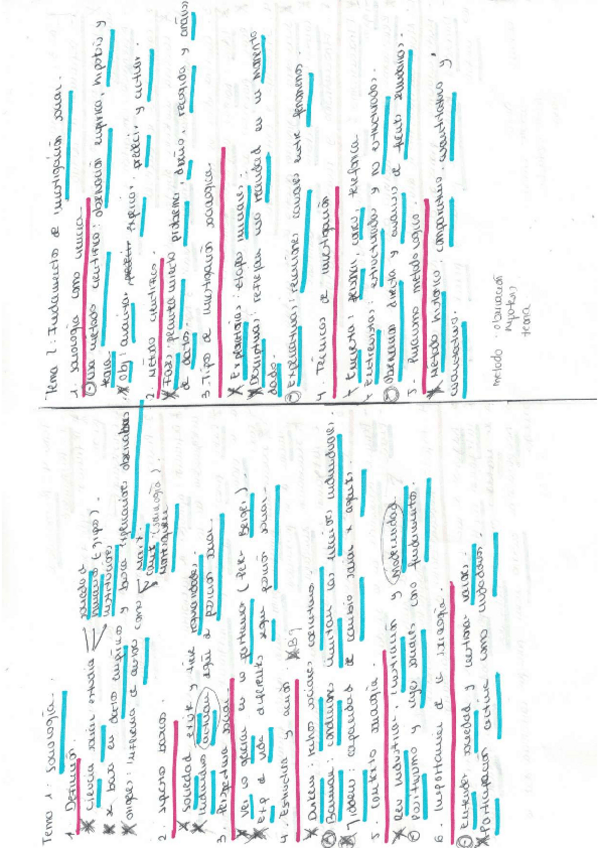 Tema 1: Sociología.
1. Definición.
ciencia social estudia sociedad
humano (grupos)
instituciones
x basa en datos empíricos y busca explicaciones observables
origen: influencia de autores como Marx
2. supuestos básicos.
Sociedad existe y tiene regularidades
Individuos actúan según su posición social.
3. Perspectiva social.
Ver lo general en lo particular (Peter Berger)
Exp de vida diferentes según posición social.
4. Estructura y acción
Durkheim: hechos sociales coercitivos.
Bauman: condiciones limitan las acciones individuales
Giddens: capacidad de cambio social x agentes
5. contexto sociología.
Rev industrial, ilustración y modernidad
Positivismo y leyes sociales como fundamentos.
6. Importancia de la sociología.
Entender sociedad y cuestionar valores
Participación activa como ciudadanos.
Tema 2: Fundamentos de investigación social.
1. sociología como ciencia.
Usa método científico: observación empírica, hipótesis y
teoría.
Obj analizar, explicar, predecir y
2. método científico.
Fases: planteamiento problema, diseño, recogida y análisis
de datos.
3. Tipos de investigación sociológica.
Exploratorios: etapas iniciales
Descriptiva: reflejan una realidad en un momento
dado.
Explicativa: relaciones causales entre fenómenos.
4. Técnicas de investigación
Encuesta: personal, correo, telefónica.
Entrevistas: estructuradas y no estructuradas.
Observación directa y análisis de fuentes secundarias.
5. Pluralismo metodológico.
método histórico, comparativo, cuantitativo y
cualitativo.
metodo - observación
hipótesis
teoria